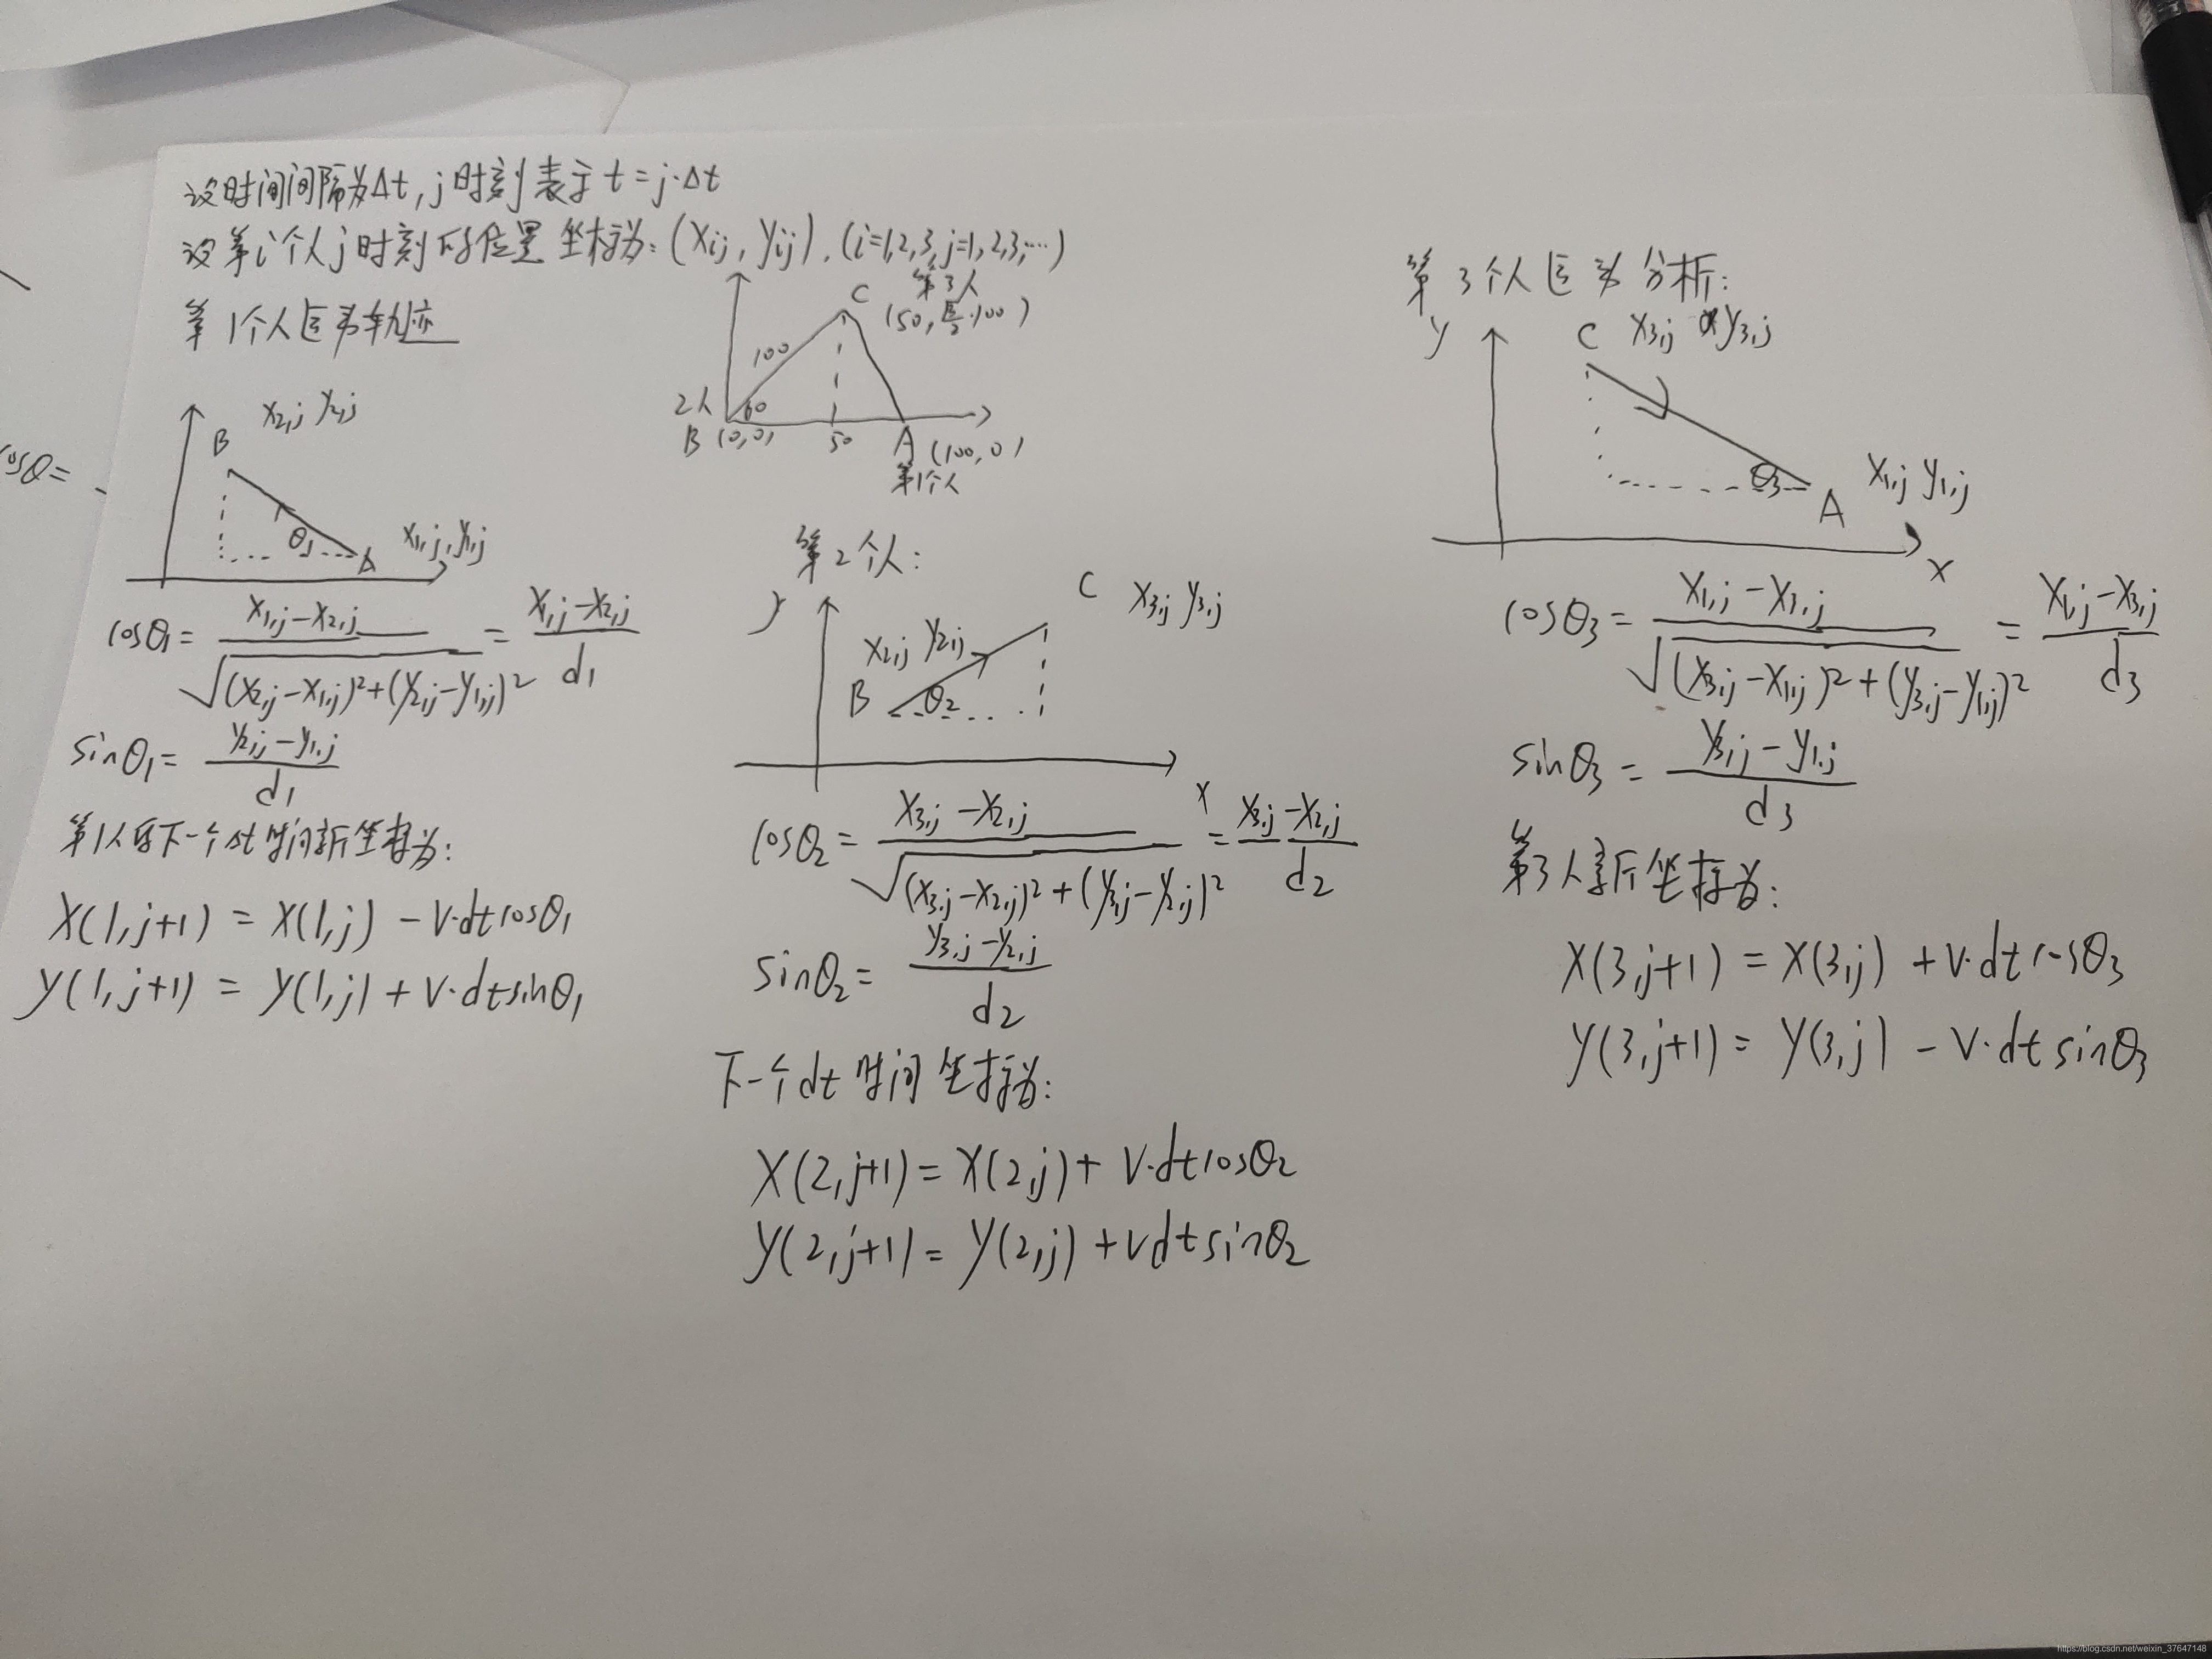 设时间间隔为Δt, j时刻表示 t = j·Δt
设第i个人j时刻的位置坐标为: (Xij, yij), (i=1,2,3, j=1,2,3,…)
第1个人运动轨迹
B X2,j Y2,j
θ1
A X1,j, Y1,j
cosθ1 = (X1,j - X2,j) / √((X2,j - X1,j)² + (Y2,j - Y1,j)²) = (X1,j - X2,j) / d1
sinθ1 = (Y2,j - y1,j) / d1
第1人在下一个Δt时间新坐标为:
X(1,j+1) = X(1,j) - V·dtcosθ1
y(1,j+1) = y(1,j) + V·dtsinθ1
cosθ=
第3人
C
(50, √3/2·100)
100
2人
60
B (0,0)
50
A (100,0)
第1个人
第2个人:
y
C X3,j y3,j
X2,j y2,j
B θ2
X
cosθ2 = (X3,j - X2,j) / √((X3,j - X2,j)² + (Y3,j - Y2,j)²) = (X3,j - X2,j) / d2
sinθ2 = (y3,j - Y2,j) / d2
下一个dt时间坐标为:
X(2,j+1) = X(2,j) + V·dtcosθ2
y(2,j+1) = y(2,j) + vdtsinθ2
第3个人运动分析:
y
C X3,j y3,j
θ3
A X1,j y1,j
X
cosθ3 = (X1,j - X3,j) / √((X3,j - X1,j)² + (Y3,j - Y1,j)²) = (X1,j - X3,j) / d3
sinθ3 = (Y3,j - y1,j) / d3
第3人新坐标为:
X(3,j+1) = X(3,j) + V·dtcosθ3
y(3,j+1) = y(3,j) - V·dtsinθ3
https://blog.csdn.net/weixin_37647148